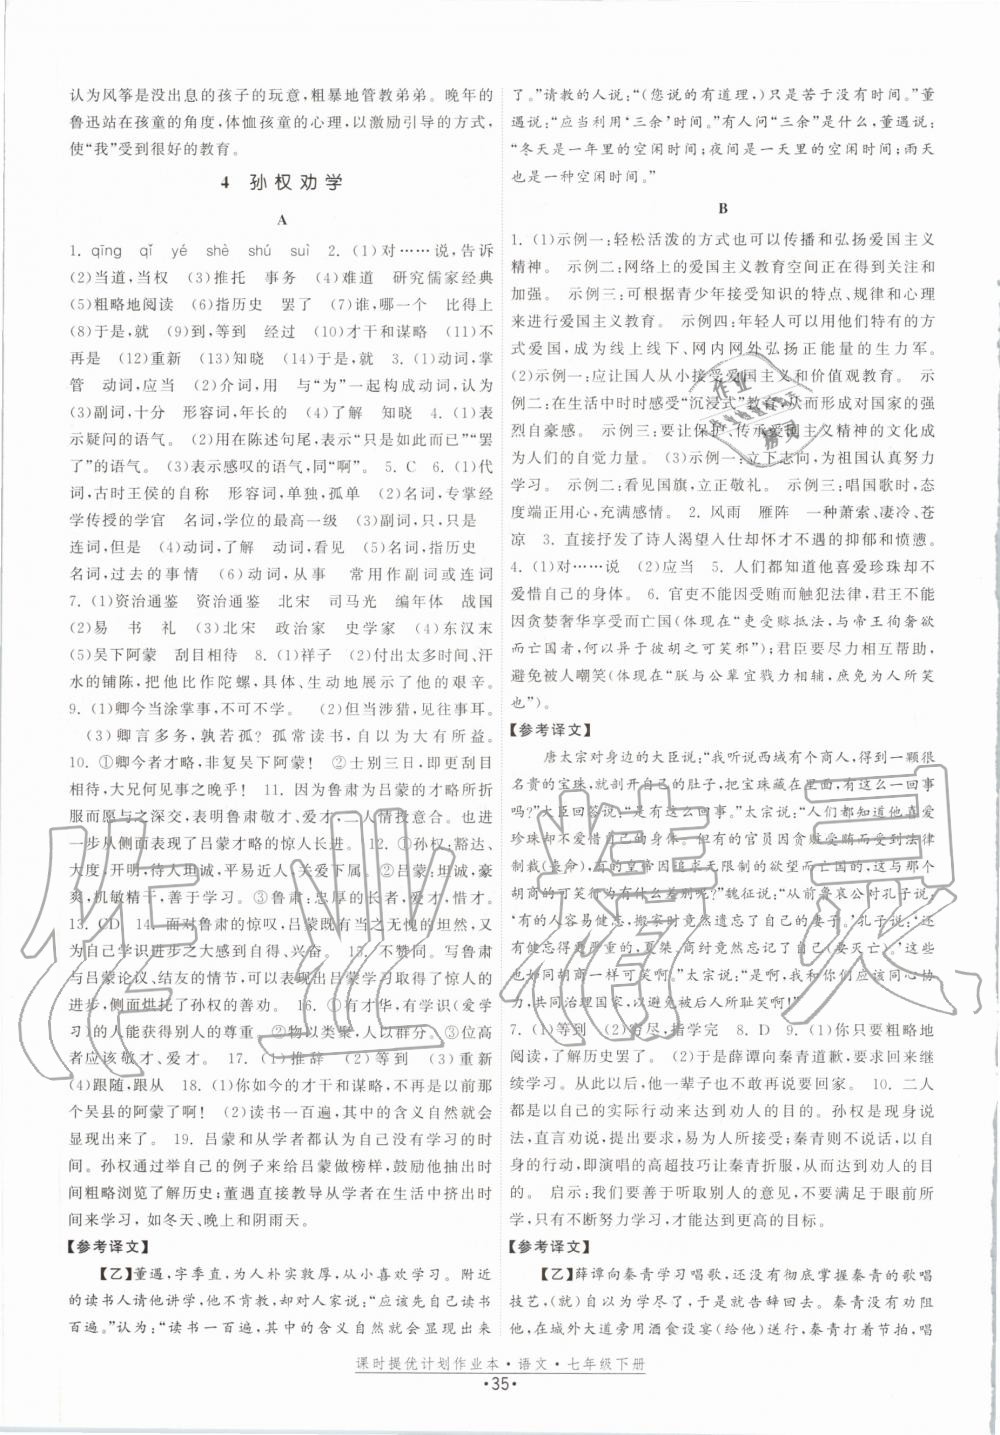 认为风筝是没出息的孩子的玩意,粗暴地管教弟弟。晚年的
鲁迅站在孩童的角度,体恤孩童的心理,以激励引导的方式,
使“我”受到很好的教育。
4 孙权劝学
A
1. qīng qǐ yé shè shú suì 2. (1)对……说,告诉
(2)当道,当权 (3)推托 事务 (4)难道 研究儒家经典
(5)粗略地阅读 (6)指历史 罢了 (7)谁,哪一个 比得上
(8)于是,就 (9)到,等到 经过 (10)才干和谋略 (11)不
再是 (12)重新 (13)知晓 (14)于是,就 3. (1)动词,掌
管 动词,应当 (2)介词,用 与“为”一起构成动词,认为
(3)副词,十分 形容词,年长的 (4)了解 知晓 4. (1)表
示疑问的语气。 (2)用在陈述句尾,表示“只是如此而已”“罢
了”的语气。 (3)表示感叹的语气,同“啊”。 5. C 6. (1)代
词,古时王侯的自称 形容词,单独,孤单 (2)名词,专掌经
学传授的学官 名词,学位的最高一级 (3)副词,只,只是
连词,但是 (4)动词,了解 动词,看见 (5)名词,指历史
名词,过去的事情 (6)动词,从事 常用作副词或连词
7. (1)资治通鉴 资治通鉴 北宋 司马光 编年体 战国
(2)易 书 礼 (3)北宋 政治家 史学家 (4)东汉末
(5)吴下阿蒙 刮目相待 8. (1)祥子 (2)付出太多时间、汗
水的铺陈,把他比作陀螺,具体、生动地展示了他的艰辛。
9. (1)卿今当涂掌事,不可不学。 (2)但当涉猎,见往事耳。
(3)卿言多务,孰若孤?孤常读书,自以为大有所益。
10. ①卿今者才略,非复吴下阿蒙! ②士别三日,即更刮目
相待,大兄何见事之晚乎! 11. 因为鲁肃为吕蒙的才略所折
服而愿与之深交,表明鲁肃敬才、爱才,二人情投意合。也进
一步从侧面表现了吕蒙才略的惊人长进。 12. ①孙权:豁达、
大度,开明,待人坦诚,平易近人,关心下属。 ②吕蒙:坦诚,豪
爽,机敏精干,善于学习。 ③鲁肃:忠厚的长者,敬才,惜才。
13. CD 14. 面对鲁肃的惊叹,吕蒙既有当之无愧的坦然,又
为自己学识进步之大感到自得、兴奋。 15. 不赞同。写鲁肃
与吕蒙论议、结友的情节,可以表现吕蒙读书后取得了惊人的
进步,侧面烘托了孙权的善劝。 16. ①有才华,有学识(爱学
习)的人能获得别人的尊重 ②物以类聚,人以群分 ③位高
者应该敬才、爱才。 17. (1)推辞 (2)等到 (3)重新
(4)跟随,跟从 18. (1)你如今的才干和谋略,不再是以前那
个吴县的阿蒙了啊! (2)读书一百遍,其中的含义自然就会
显现出来了。 19. 吕蒙和从学者都认为自己没有学习的时
间。孙权通过举自己的例子来给吕蒙做榜样,鼓励他抽时
间粗略浏览了解历史;董遇直接教导从学者在生活中挤出时
间来学习,如冬天、晚上和阴雨天。
【参考译文】
【乙】董遇,字季直,为人朴实敦厚,从小喜欢学习。附近
的读书人请他讲学,他不肯教,却对人家说:“应该先自己读书
百遍。”认为:“读书一百遍,其中的含义自然就会显现出来
了。”请教的人说:“(您说的有道理,)只是苦于没有时间。”董
遇说:“应当利用‘三余’时间。”有人问“三余”是什么,董遇说:
“冬天是一年里的空闲时间;夜间是一天里的空闲时间;雨天
也是一种空闲时间。”
B
1. (1)示例一:轻松活泼的方式也可以传播和弘扬爱国主义
精神。 示例二:网络上的爱国主义教育空间正在得到关注和
开发。 示例三:可根据青少年接受知识的特点、规律和心理
来进行爱国主义教育。 示例四:年轻人可以用他们特有的方
式爱国,成为线上线下、网内网外弘扬正能量的生力军。
(2)示例一:应让国人从小接受爱国主义和价值观教育。 示
例二:在生活中时时感受“沉浸式”教育,从而形成对国家的强
烈自豪感。 示例三:要让保护、传承爱国主义精神的文化成
为人们的自觉力量。 (3)示例一:立下志向,为祖国认真努力
学习。 示例二:看见国旗,立正敬礼。 示例三:唱国歌时,态
度端正用心,充满感情。 2. 风雨 雁阵 一种萧索、凄冷、苍
凉 3. 直接抒发了诗人渴望入仕却怀才不遇的抑郁和愤懑。
4. (1)对……说 (2)应当 5. 人们都知道他喜爱珍珠却不
爱惜自己的身体。 6. 官吏不能因受贿而触犯法律,君王不能
因贪婪奢华享受而亡国(体现在“吏受赇抵法,与帝王徇奢欲
而亡国者,何以异于彼胡之可笑邪”);君臣应互相帮助,
避免被人嘲笑(体现在“朕与公辈宜戮力相辅,庶免为人所笑
也”)。
【参考译文】
唐太宗对身边的大臣说:“我听说西域有个商人,得到一颗很
名贵的宝珠,就剖开自己的肚子,把宝珠藏在里面,有这么一回事
吗?”大臣回答说:“是有这么一回事。”太宗说:“人们都知道他喜爱
珍珠却不爱惜自己的身体。但有的官员因贪赃受贿而受到法律
制裁(丧命),有的皇帝因追求无限制的欲望而亡国的,这些与那个
胡商的可笑行为有什么差别呢?”魏征说:“从前鲁哀公对孔子说:
‘有的人容易健忘,搬家时竟然遗忘了自己的妻子。’孔子说:‘还
有健忘得更厉害的,夏桀、商纣竟然忘记了自己(要灭亡)。’这些
也同样可笑啊。”太宗说:“是的,我和你们应该同心协
力,共同治理国家,以避免被后人所耻笑啊!”
7. (1)等到 (2)穷尽,指学完 8. D 9. (1)你只要粗略地
阅读,了解历史罢了。 (2)于是薛谭向秦青道歉,要求回来继
续学习。从此以后,他一辈子也不敢再说要回家。 10. 二人
都是以自己的实际行动来达到劝人的目的。孙权是现身说
法,直言劝说,提出要求,易为人接受;秦青则不正面劝说,不
强加于人,而是演唱的高超技巧让秦青折服,从而达到劝人的目
的。 启示:我们要善于听取别人的意见,不要满足于眼前所
学,只有不断努力学习,才能达到更高的目标。
【参考译文】
【乙】薛谭向秦青学习唱歌,还没有彻底掌握秦青的歌唱
技艺,(就)自以为学尽了,于是就告辞回去。秦青没有劝阻
他,在城外大道旁用酒食设宴(给他)送行,秦青打着节拍,唱
课时提优计划作业本·语文·七年级下册
·35·
作业精灵